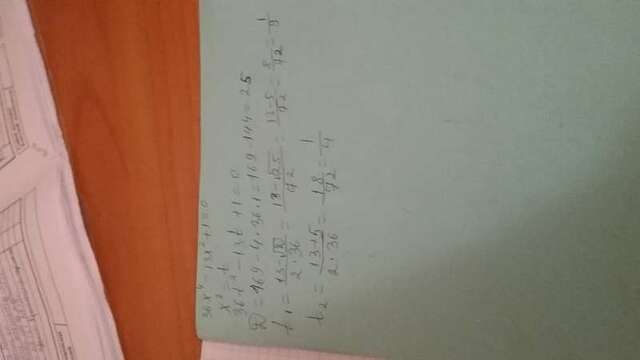 36x⁴ - 13x² + 1 = 0
x² = t
36t² - 13t + 1 = 0
D = 169 - 4 · 36 · 1 = 169 - 144 = 25
t₁ = 13 - √D / 2 · 36 = 13 - √25 / 72 = 13 - 5 / 72 = 8 / 72 = 1 / 9
t₂ = 13 + 5 / 2 · 36 = 18 / 72 = 1 / 4